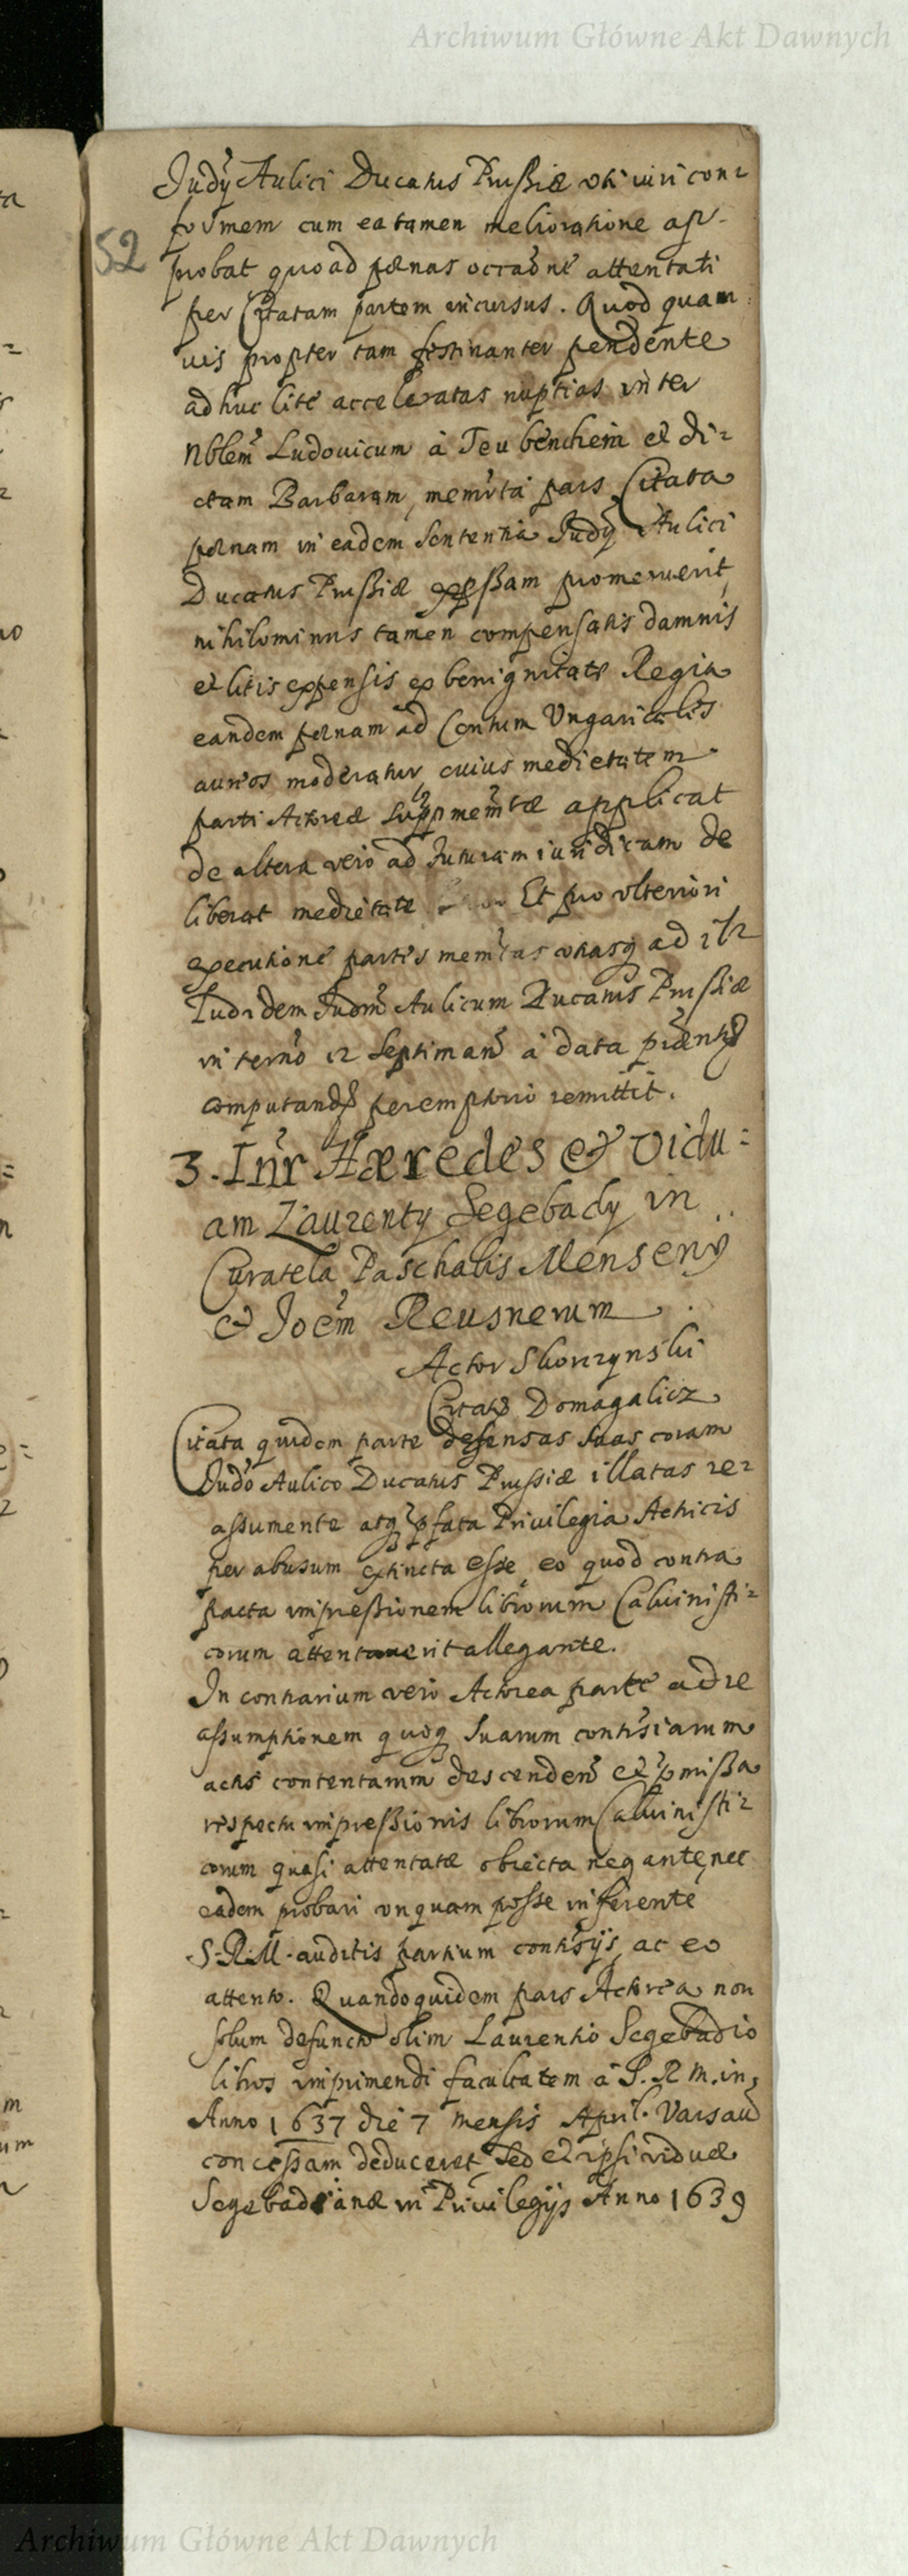 Archiwum Główne Akt Dawnych
52
Judÿ Aulici Ducatus Prussiæ uti iuri con=
formem cum ea tamen melioratione ap-
probat quoad pænas occaõne attentati
per Citatam partem incursus. Quod quam
uis propter tam festinanter pendente
adhuc lite acceleratas nuptias inter
Nblem Ludouicum à Teubenchein et di=
ctam Barbaram, memrta pars Citata
pænam in eadem Sententia Judÿ Aulici
Ducatus Prussiæ expssam promeruerit,
nihilominus tamen compensatis damnis
et litis expensis ex benignitate Regia
eandem pænam ad Centum Ungaricales
aureos moderatur, cuius medietatem
parti Actoreæ supp memtæ applicat
de altera vero ad futuram iuridicam de
liberat medietate Et pro ulteriori
executione partes memtas ad
Iudidem Judm Aulicum Ducatus Prussiæ
in termo 12 Septiman à data pñtis
computand peremptorio remittit.
3. Intr Hæredes & Vidu=
am Laurentÿ Segebady in
Curatela Paschalis Mensenÿ
& Joem Reusnerum
Actor Skorzynski
Citats Domagalicz
Citata quidem parte defensas suas coram
Judo Aulico Ducatus Prussiæ illatas re=
assumente atq pfata Priuilegia Actricis
per abusum extincta esse, eo quod contra
pacta impressionem librorum Caluinisti=
corum attentauerit allegante.
In contrarium vero Actorea parte ad re
assumptionem quoq suarum contrsiarum
actis contentarum descenden et pmissa
respectu impressionis librorum Caluinisti=
corum quasi attentatæ obiecta negante, nec
eadem probari unquam posse inferente
S. R. M. auditis partium contrsijs, ac eo
attento. Quandoquidem pars Actorea non
solum defuncto olim Laurentio Segebadio
libros imprimendi facultatem à S. R. M. in
Anno 1637 die 7 mensis April. Varsau
concessam deduceret, Sed et ipsi viduæ
Segebadianæ in Priuilegijs Anno 1639
Archiwum Główne Akt Dawnych